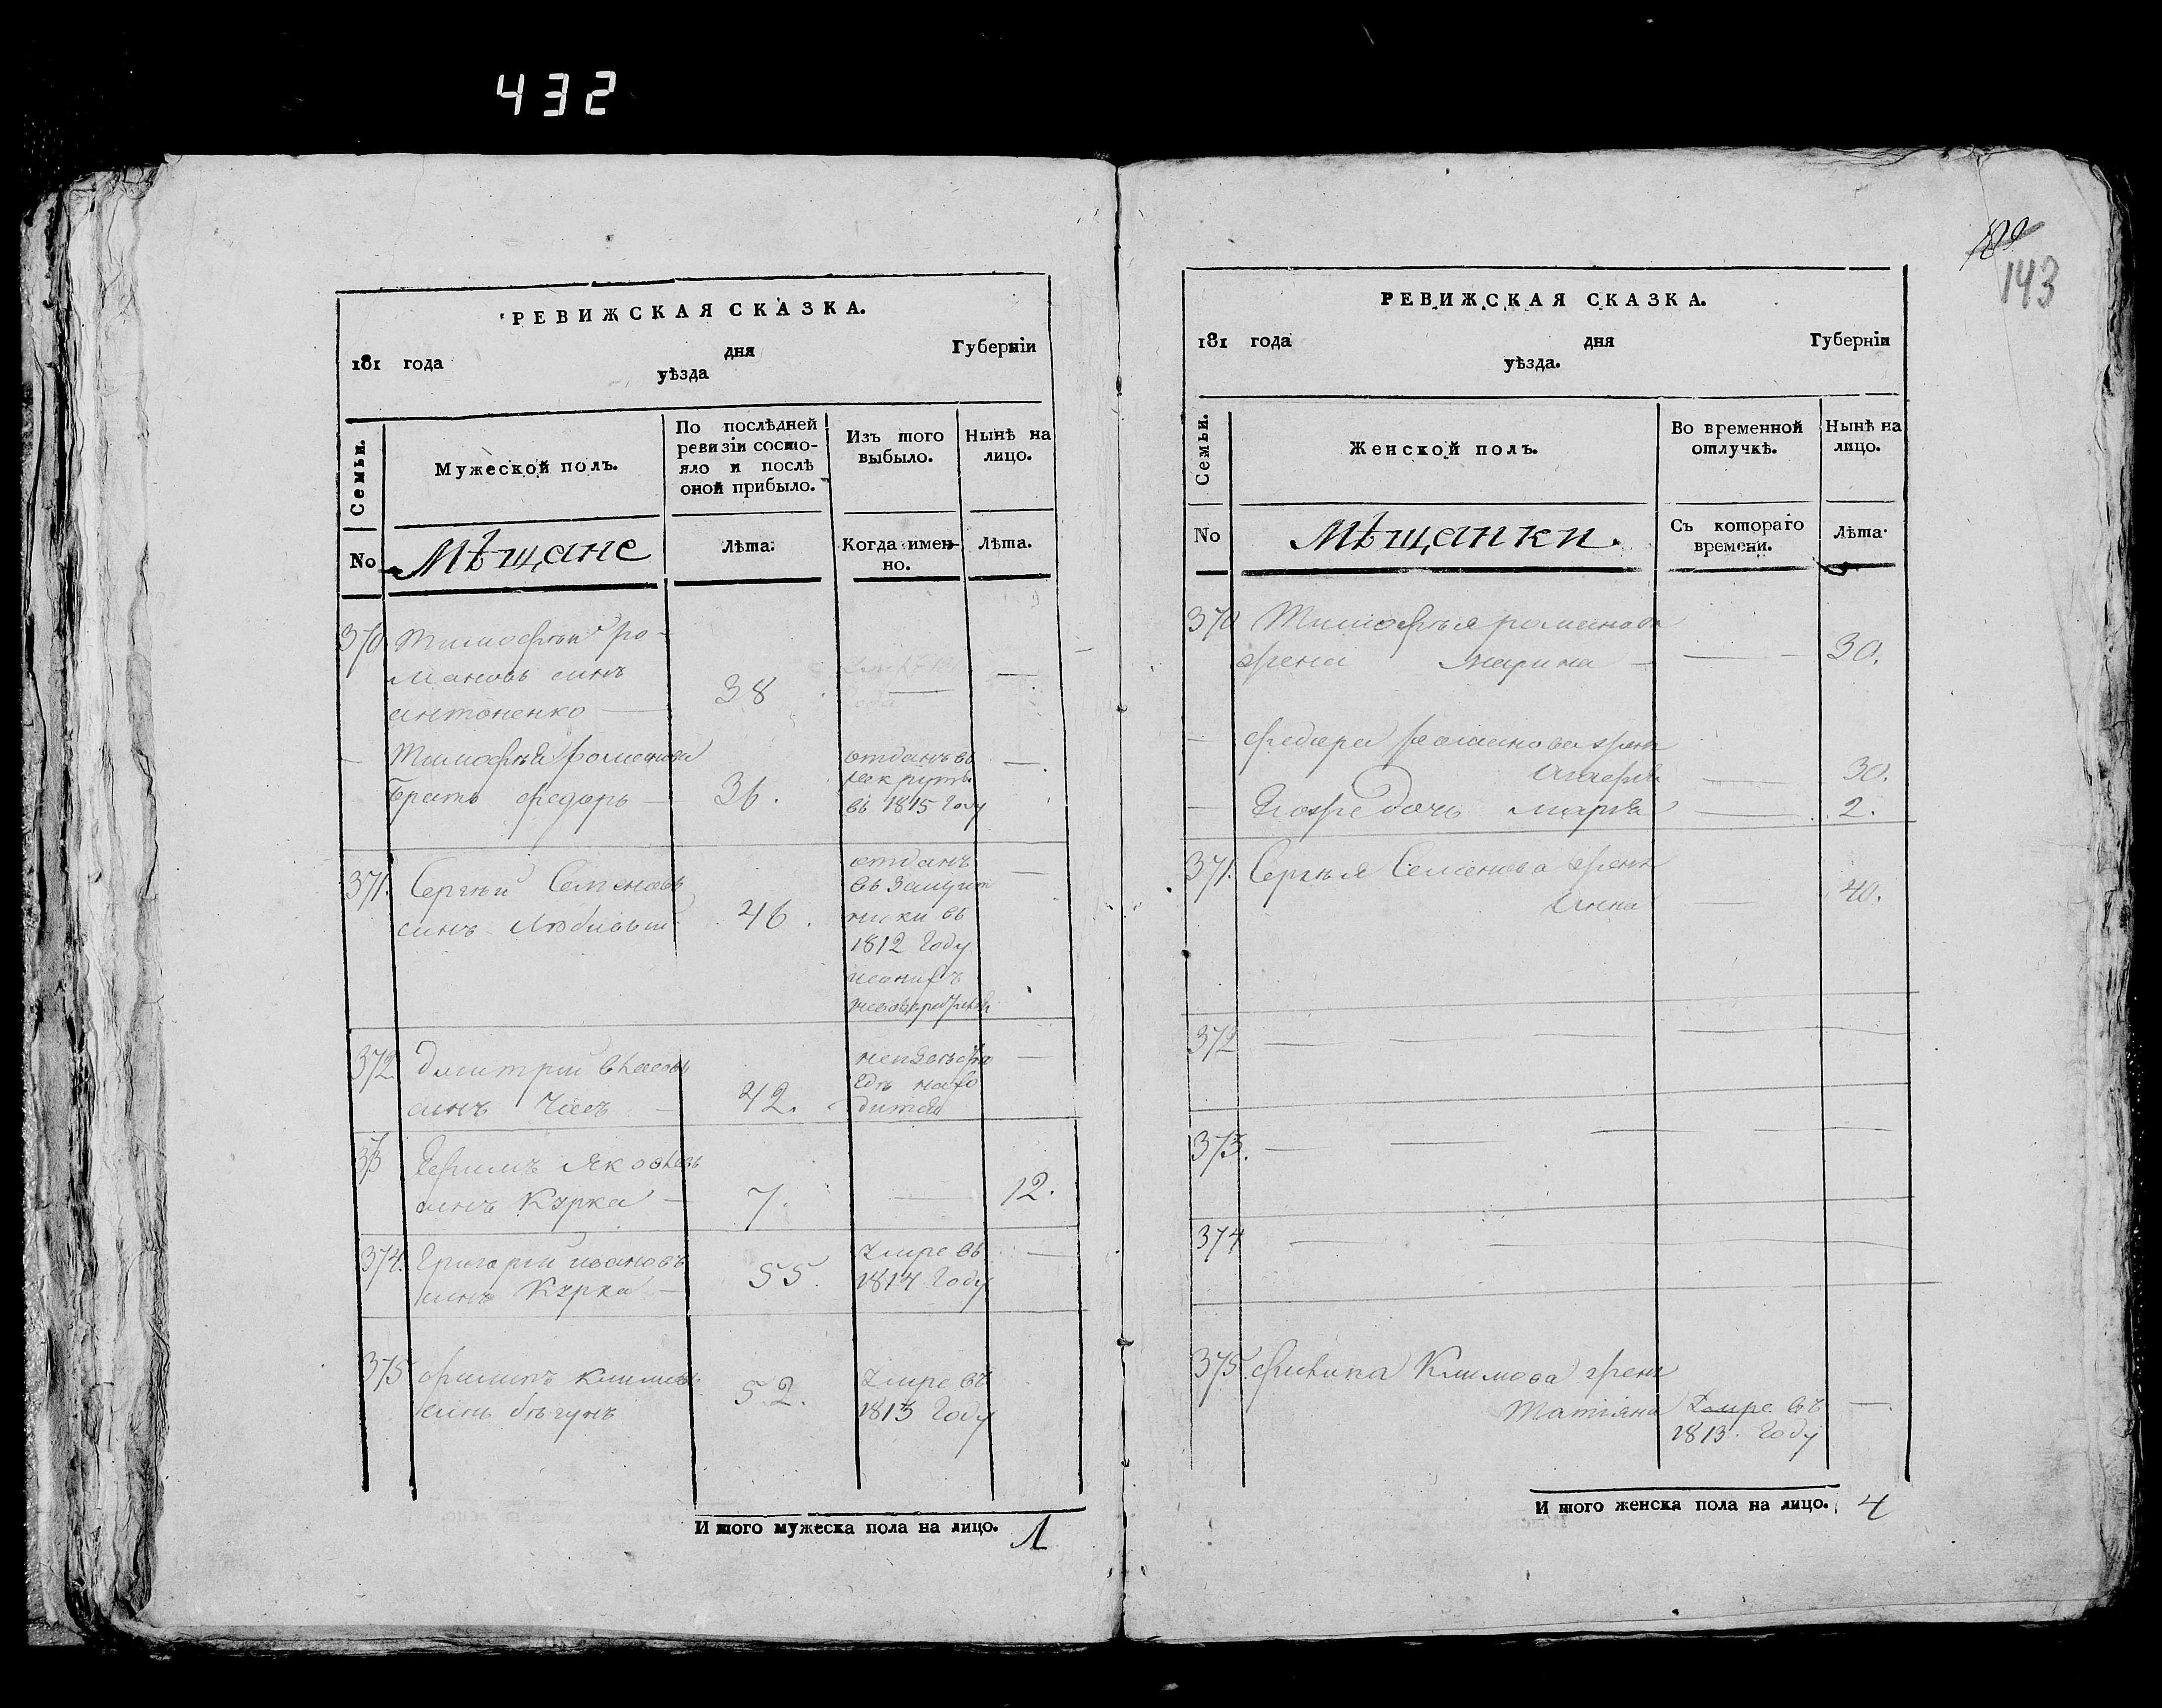 432
143
РЕВИЖСКАЯ СКАЗКА.
181 года дня Губерніи
уѣзда
Семьи.
Мужеской полъ.
По послѣдней
ревизіи состо-
яло и послѣ
оной прибыло.
Изъ того
выбыло.
Нынѣ на
лицо.
No
Мѣщане
Лѣта.
Когда имен-
но.
Лѣта.
370 Тимофѣй Ро-
мановъ синъ
антоненко — 38 — —
— Тимофѣя романова
братъ федоръ — 36.
отданъ въ
рекруты
въ 1815 Году —
371. Сергѣй Семеновъ
синъ 46.
отданъ
въ
ники въ
1812 Году
—
372. Дмитрій
синъ Часъ — 42.
дится —
373 Ефимъ Яковлевъ
синъ Курка — 7. — 12.
374. Григорій ивановъ
синъ Курка — 55.
Умре въ
1814 Году —
375 филипъ климовъ
синъ бѣгунъ 52.
Умре въ
1813 Году
И того мужеска пола на лицо. 1
РЕВИЖСКАЯ СКАЗКА.
181 года дня Губерніи
уѣзда.
Семьи.
Женской полъ.
Во временной
отлучкѣ.
Нынѣ на
лицо.
No
Мѣщанки.
Съ котораго
времени.
Лѣта.
370 Тимофѣя романова
жена Марина — — 30.
— федора романова жена
— 30.
— дочь марія — 2.
371. Сергѣя Семенова жена
Анна — 40.
372 — — — — —
373. — — — — —
374 — — —
375. филипа Климова жена
Татіяна Умре въ —
1813. Году
И того женска пола на лицо. 4